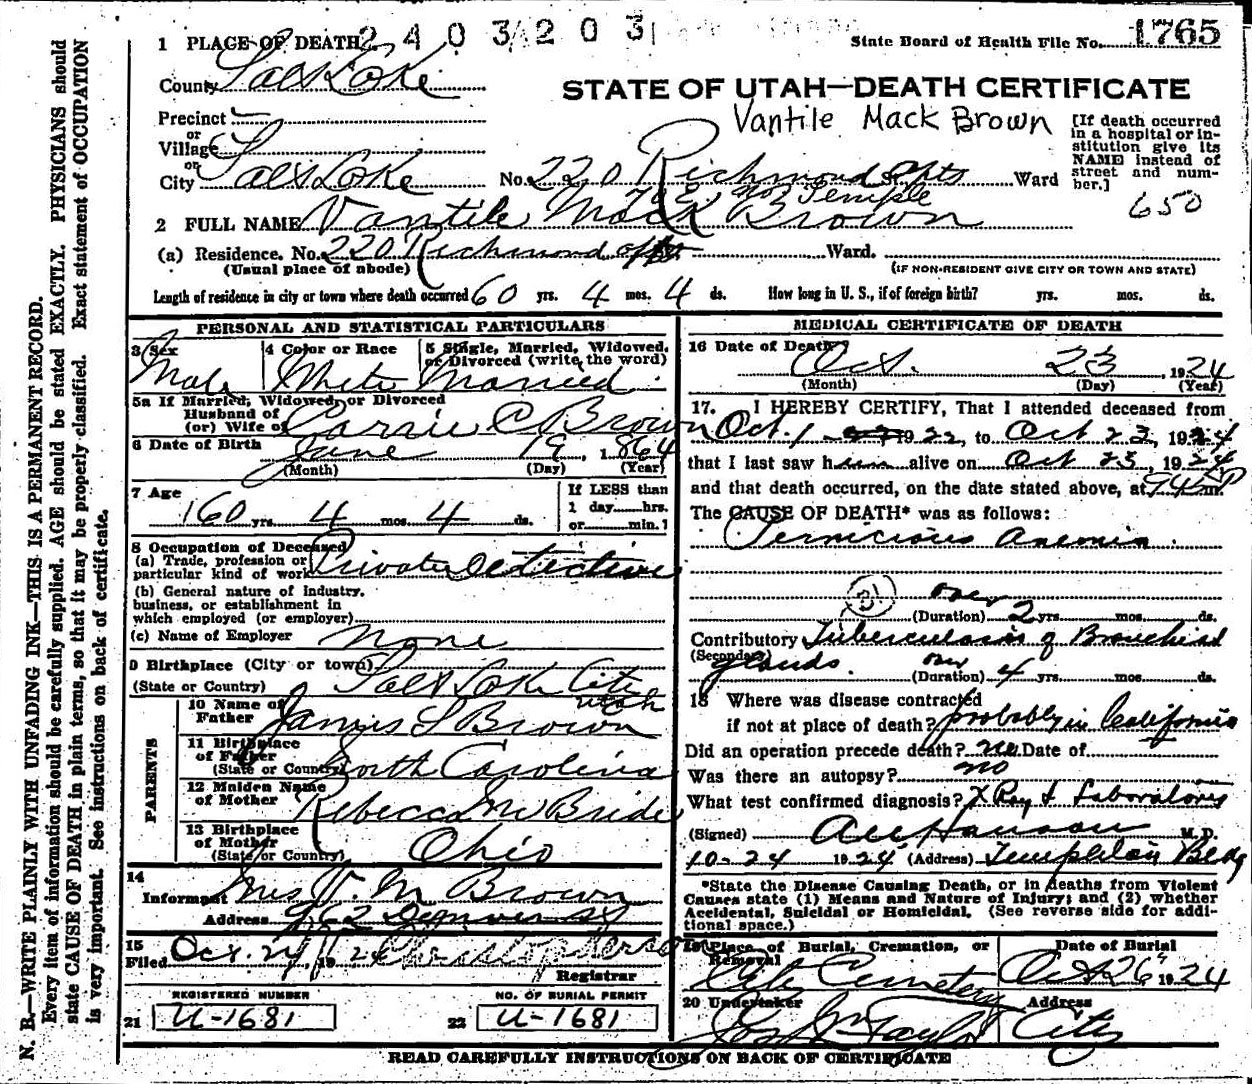 2403203
1 PLACE OF DEATH
State Board of Health File No. 1765
County Salt Lake
STATE OF UTAH—DEATH CERTIFICATE
Precinct
Vantile Mack Brown
[If death occurred in a hospital or institution give its NAME instead of street and number.]
or
Village
or
City Salt Lake No. 220 Richmond Apts Ward
70 E No Temple
650
2 FULL NAME Vantile Mack Brown
(a) Residence. No. 220 Richmond apts Ward.
(Usual place of abode) (IF NON-RESIDENT GIVE CITY OR TOWN AND STATE)
Length of residence in city or town where death occurred 60 yrs. 4 mos. 4 ds. How long in U. S., if of foreign birth? yrs. mos. ds.
PERSONAL AND STATISTICAL PARTICULARS
3 Sex 4 Color or Race 5 Single, Married, Widowed, or Divorced (write the word)
Male White Married
5a If Married, Widowed, or Divorced
Husband of
(or) Wife of Carrie C Brown
6 Date of Birth June 19, 1864
(Month) (Day) (Year)
7 Age If LESS than
1 day hrs.
60 yrs. 4 mos. 4 ds. or min.?
8 Occupation of Deceased
(a) Trade, profession or
particular kind of work Private Detective
(b) General nature of industry,
business, or establishment in
which employed (or employer)
(c) Name of Employer none
9 Birthplace (City or town) Salt Lake City
(State or Country) Utah
PARENTS
10 Name of
Father James S Brown
11 Birthplace
of Father
(State or Country) North Carolina
12 Maiden Name
of Mother Rebecca McBride
13 Birthplace
of Mother
(State or Country) Ohio
14
Informant Mrs V. M Brown
Address 962 Denver St
15
Filed Oct. 24, 1924
Registrar
REGISTERED NUMBER NO. OF BURIAL PERMIT
21 U-1681 22 U-1681
MEDICAL CERTIFICATE OF DEATH
16 Date of Death Oct. 23, 1924
(Month) (Day) (Year)
17. I HEREBY CERTIFY, That I attended deceased from
Oct. 1 1922, to Oct 23, 1924
that I last saw him alive on Oct 23, 1924
and that death occurred, on the date stated above, at 945 P m.
The CAUSE OF DEATH* was as follows:
Pernicious Anemia
31 over
(Duration) 2 yrs. mos. ds.
Contributory Tuberculosis of Bronchial
(Secondary) glands. over
(Duration) 4 yrs. mos. ds.
18 Where was disease contracted
if not at place of death? probably in California
Did an operation precede death? no Date of
Was there an autopsy? no
What test confirmed diagnosis? X Ray & Laboratory
(Signed) M.D.
10-24 1924 (Address) Templeton Bldg
*State the Disease Causing Death, or in deaths from Violent
Causes state (1) Means and Nature of Injury; and (2) whether
Accidental, Suicidal or Homicidal. (See reverse side for addi-
tional space.)
19 Place of Burial, Cremation, or Removal Date of Burial
City Cemetery Oct 26, 1924
20 Undertaker Address
Taylor City
READ CAREFULLY INSTRUCTIONS ON BACK OF CERTIFICATE
N. B.—WRITE PLAINLY WITH UNFADING INK—THIS IS A PERMANENT RECORD.
Every item of information should be carefully supplied. AGE should be stated EXACTLY. PHYSICIANS should
state CAUSE OF DEATH in plain terms, so that it may be properly classified. Exact statement of OCCUPATION
is very important. See instructions on back of certificate.